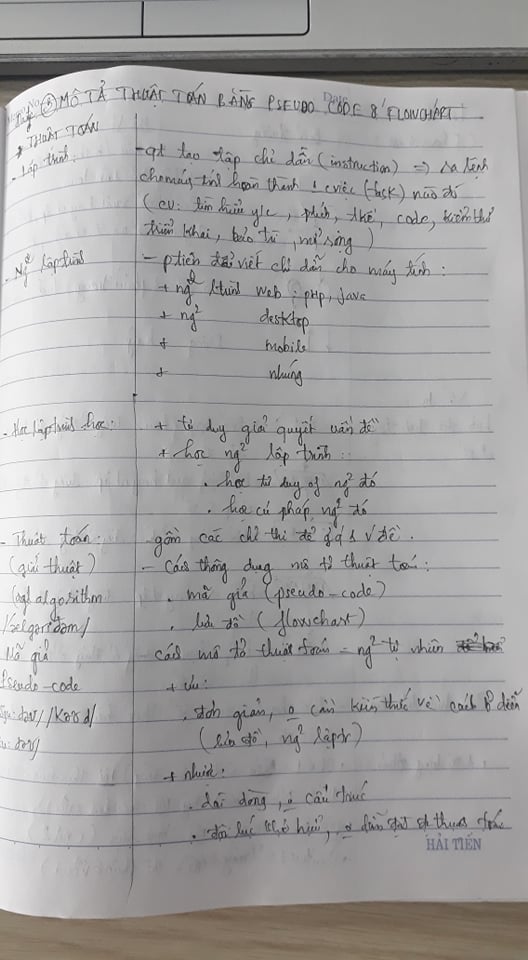 MÔ TẢ THUẬT TOÁN BẰNG PSEUDO CODE & FLOWCHART
THUẬT TOÁN
- Lập trình:
- qt tạo tập chỉ dẫn (instruction) => ra lệnh
cho máy tính hoàn thành 1 cviệc (task) nào đó
(cv: tìm hiểu y/c, ptích, tkế, code, kiểm thử
triển khai, bảo trì,
- Ng² lập trình
- ptiện để viết chỉ dẫn cho máy tính:
+ ng² ltrình web: PHP, Java
+ ng² desktop
+ mobile
+ nhúng
- Học lập trình học:
+ tư duy giải quyết vấn đề
+ học ng² lập trình:
. học tư duy of ng² đó
. học cú pháp ng² đó
- Thuật toán:
gồm các chỉ thị để g.q 1 v.đề.
(giải thuật)
- Cách thông dụng mô tả thuật toán:
algorithm
. mã giả (pseudo-code)
/ˈælɡərɪðəm/
. lưu đồ (flowchart)
Mã giả
- cách mô tả thuật toán = ng² tự nhiên
Pseudo-code
+ ưu:
. đơn giản, o cần kiến thức về cách b diễn
(lưu đồ, ng² lập tr)
+ nhược:
. dài dòng, o cấu trúc
. đôi lúc khó hiểu, o diễn đạt thuật toán
HẢI TIẾN